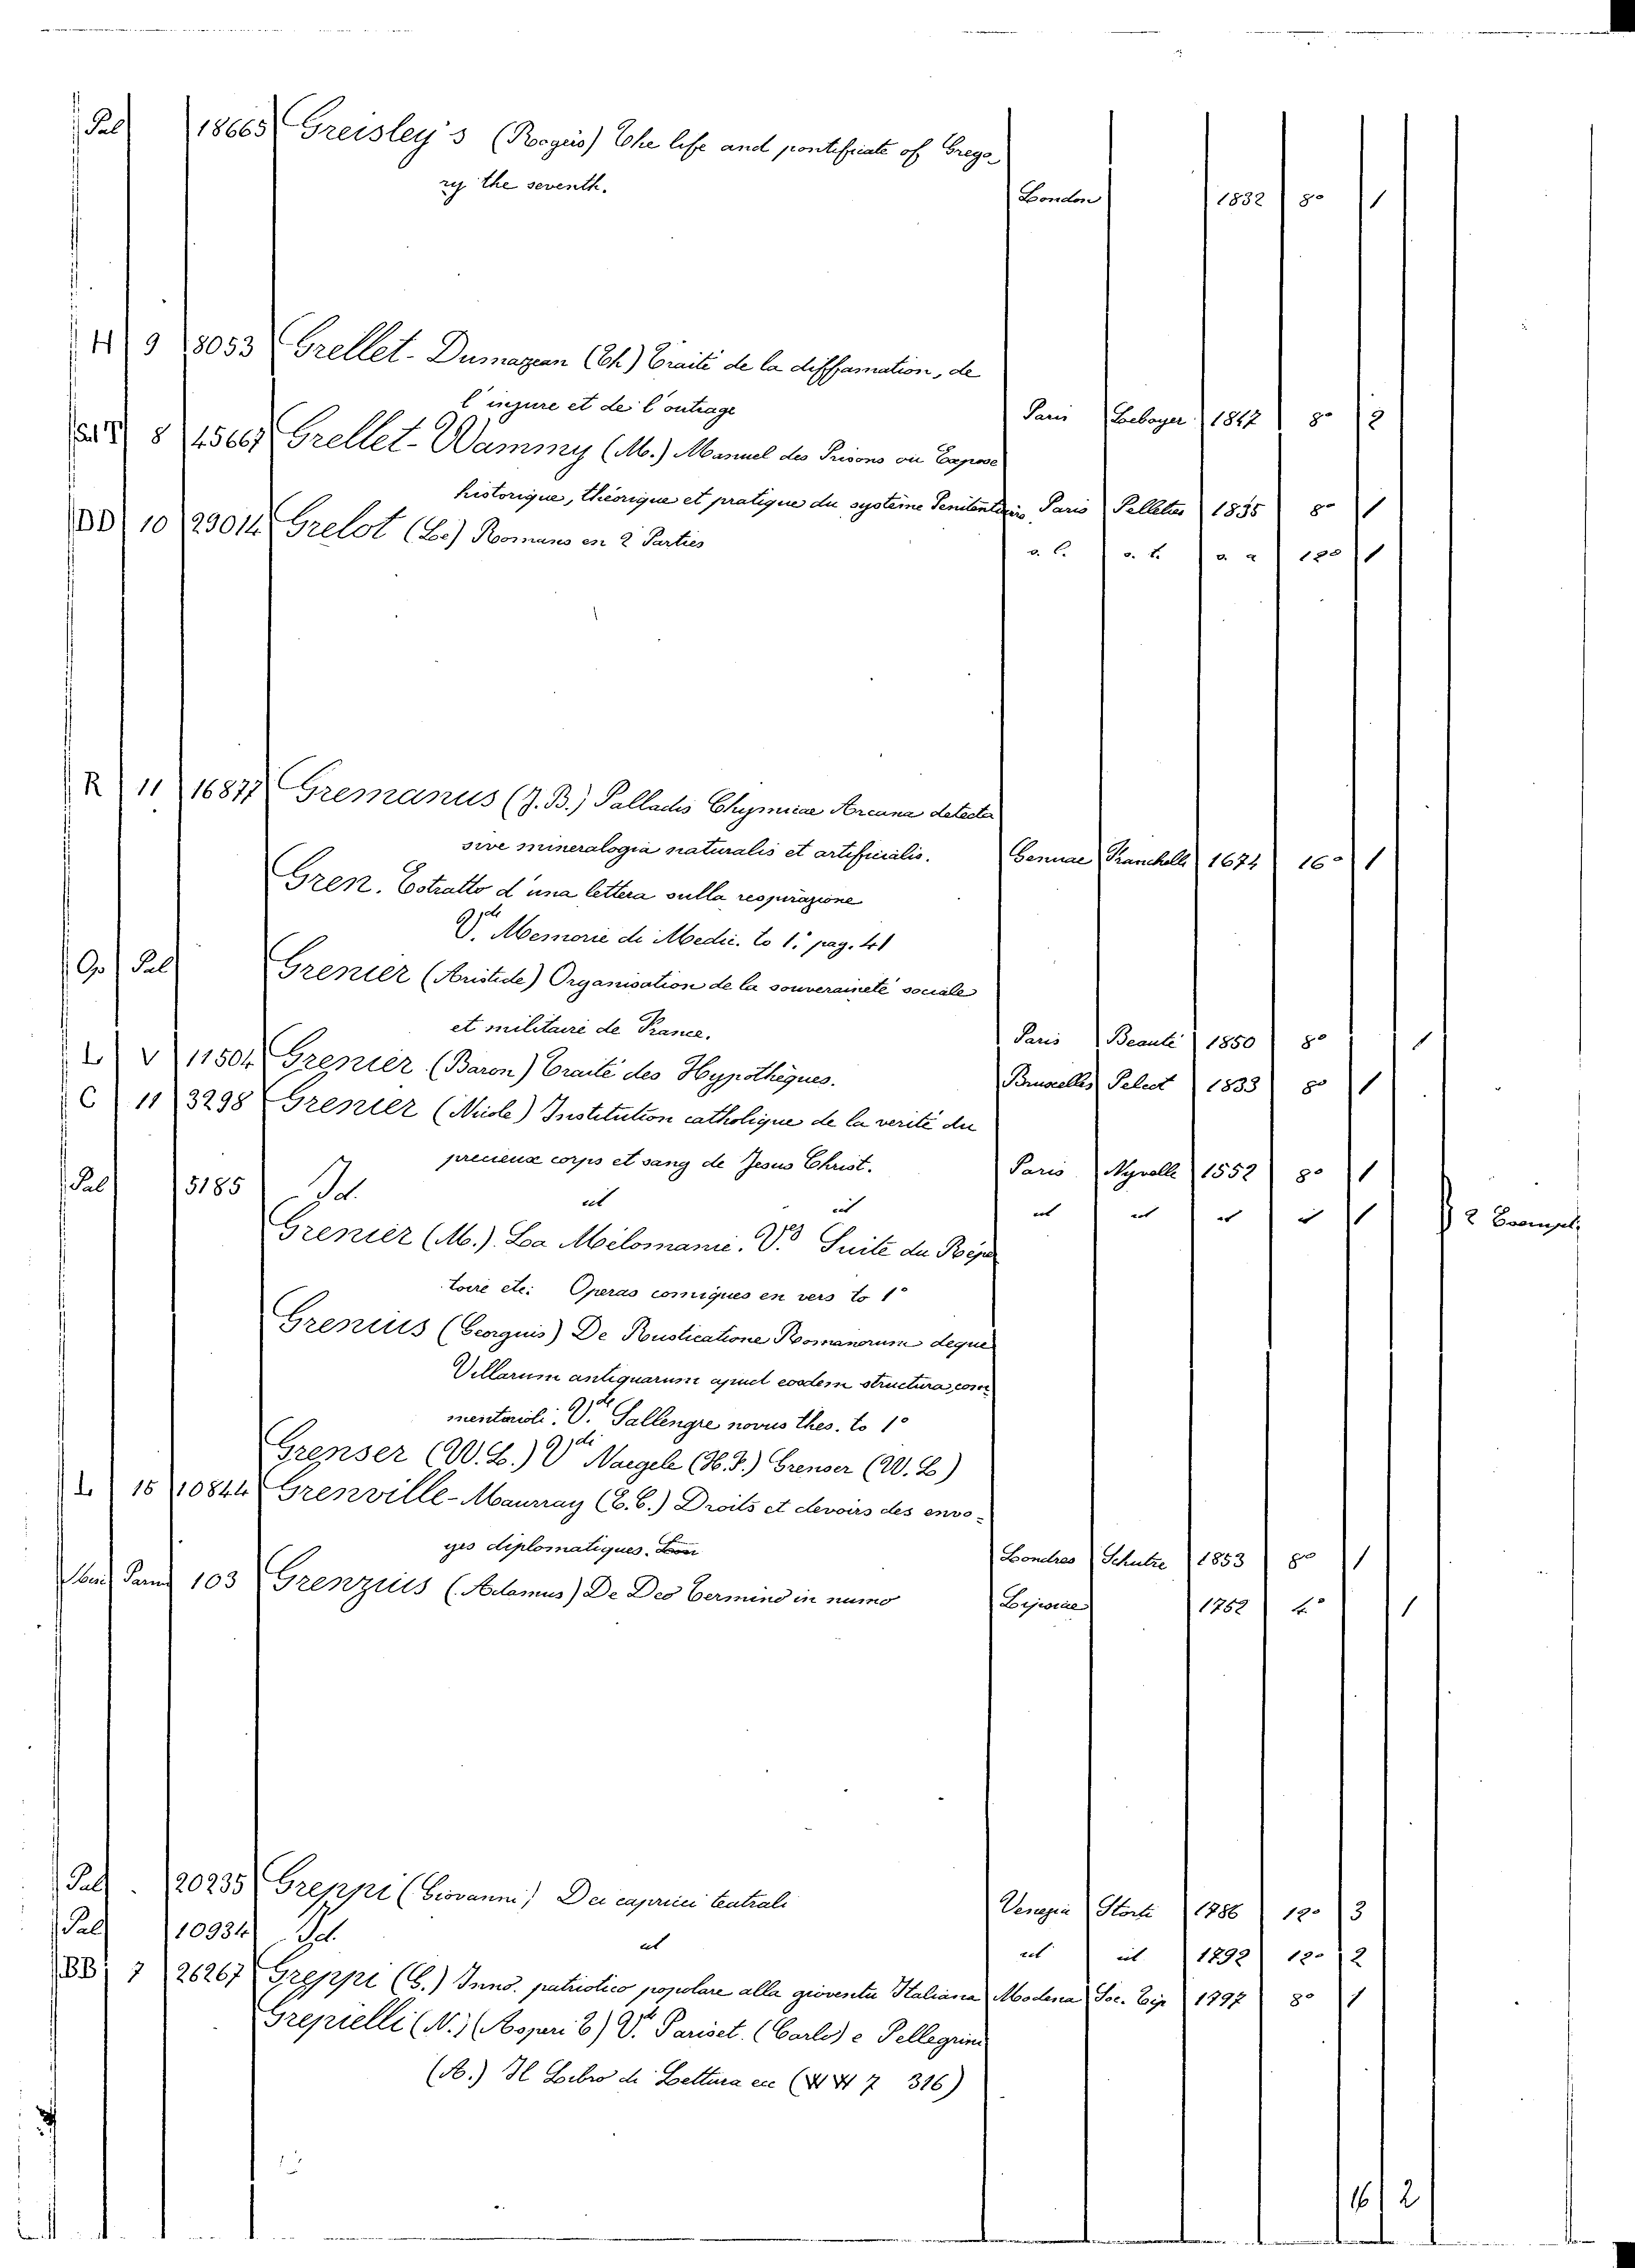 Pal 18665 Greisley's (Rogeis) The life and pontificate of Grego-
ry the seventh. London 1832 8° 1
H 9 8053 Grellet-Dumazean (Th) Traité de la diffamation, de
l'injure et de l'outrage Paris 1847 8° 2
8 Grellet-Wammy (M.) Manuel des Prisons ou Exposé
historique, théorique et pratique du systeme Penitentiaire Paris 1835 8° 1
DD 10 29014 Grelot (Le) Romans en 2 Parties s. l. s. t. s. a 12° 1
R 11 16877 Gremanus (J. B.) Palladis Chymicae Arcana detecta
sive mineralogia naturalis et artificialis. Genuae 1674 16° 1
Gren. Estratto d'una lettera sulla respirazione
V.de Memorie di Medic. to 1.° pag. 41
Op Pal Grenier (Aristide) Organisation de la souveraineté sociale
et militaire de France. Paris Beaulé 1850 8° 1
L V 11504 Grenier (Baron) Traité des Hypothèques. Bruxelles 1833 8° 1
C 11 3298 Grenier (Nicole) Institution catholique de la verité du
precieux corps et sang de Jesus Christ. Paris 1552 8° 1
Pal 5185 Id. ut ut ut ut ut ut 1 2 Exempl.
Grenier (M.) La Mélomanie. V.es Suite du Réper
toire etc: Operas comiques en vers to 1°
Grenius (Georgius) De Rusticatione Romanorum deque
Villarum antiquarum apud eosdem structura com
mentarioli. V.de Sallengre novus thes. to 1°
Grenser (W. L.) V.di Naegele (H. F.) Grenser (W. L)
L 15 10844 Grenville-Maurray (E. C.) Droits et devoirs des envo-
yes diplomatiques. Londres Schulze 1853 8° 1
103 Grenzius (Adamus) De Deo Termino in numo Lipsiae 1752 4° 1
Pal 20235 Greppi (Giovanni) Dei capricci teatrali Venezia Storti 1786 12° 3
Pal 10934 Id. ut ut ut 1792 12° 2
BB 7 26267 Greppi (G.) Inno patriotico popolare alla gioventù Italiana Modena Soc. Tip 1797 8° 1
Grepielli (N.) V.de Pariset. (Carlo) e Pellegrini
(A.) Il Libro di Lettura ecc 7 316)
16 2